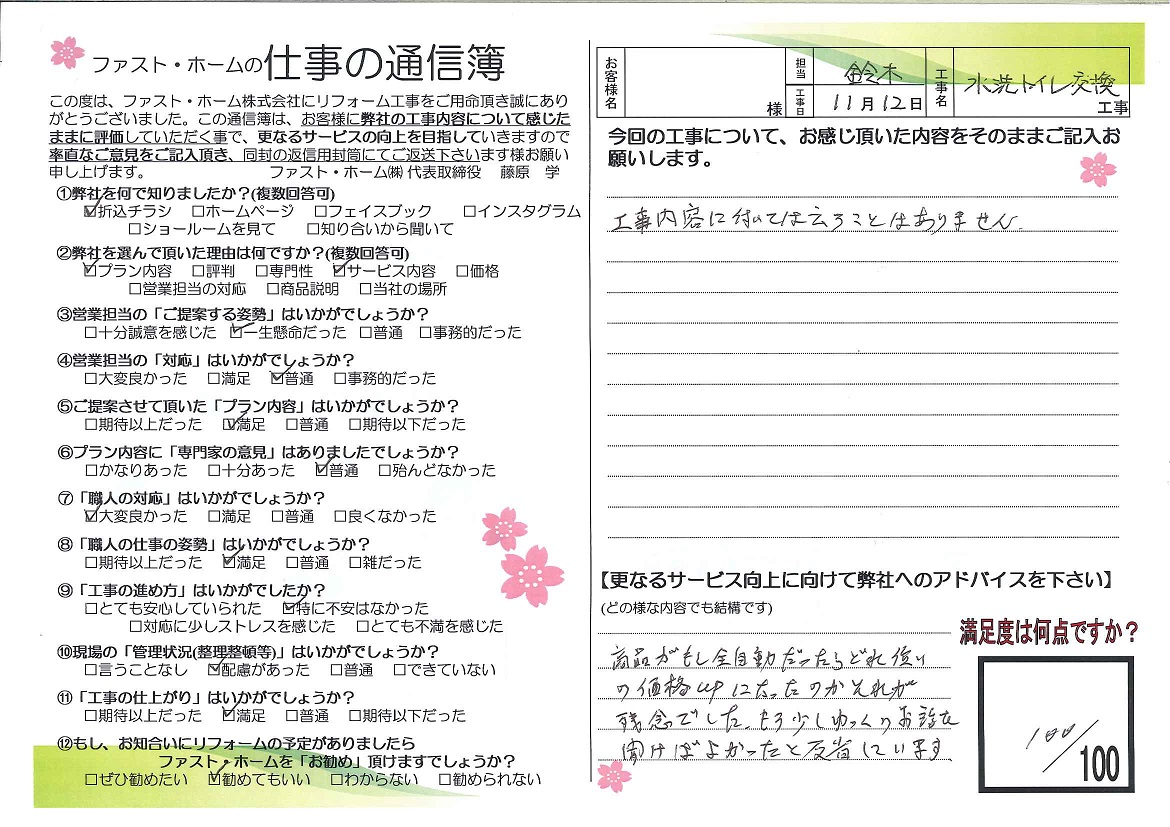 ファスト・ホームの仕事の通信簿
この度は、ファスト・ホーム株式会社にリフォーム工事をご用命頂き誠にあり
がとうございました。この通信簿は、お客様に弊社の工事内容について感じた
ままに評価していただく事で、更なるサービスの向上を目指していきますので
率直なご意見をご記入頂き、同封の返信用封筒にてご返送下さいます様お願い
申し上げます。 ファスト・ホーム㈱ 代表取締役 藤原 学
①弊社を何で知りましたか？(複数回答可)
☑折込チラシ □ホームページ □フェイスブック □インスタグラム
□ショールームを見て □知り合いから聞いて
②弊社を選んで頂いた理由は何ですか？(複数回答可)
☑プラン内容 □評判 □専門性 ☑サービス内容 □価格
□営業担当の対応 □商品説明 □当社の場所
③営業担当の「ご提案する姿勢」はいかがでしょうか？
□十分誠意を感じた ☑一生懸命だった □普通 □事務的だった
④営業担当の「対応」はいかがでしょうか？
□大変良かった □満足 ☑普通 □事務的だった
⑤ご提案させて頂いた「プラン内容」はいかがでしょうか？
□期待以上だった ☑満足 □普通 □期待以下だった
⑥プラン内容に「専門家の意見」はありましたでしょうか？
□かなりあった □十分あった ☑普通 □殆んどなかった
⑦「職人の対応」はいかがでしょうか？
☑大変良かった □満足 □普通 □良くなかった
⑧「職人の仕事の姿勢」はいかがでしょうか？
□期待以上だった ☑満足 □普通 □雑だった
⑨「工事の進め方」はいかがでしたか？
□とても安心していられた ☑特に不安はなかった
□対応に少しストレスを感じた □とても不満を感じた
⑩現場の「管理状況(整理整頓等)」はいかがでしょうか？
□言うことなし ☑配慮があった □普通 □できていない
⑪「工事の仕上がり」はいかがでしょうか？
□期待以上だった ☑満足 □普通 □期待以下だった
⑫もし、お知合いにリフォームの予定がありましたら
ファスト・ホームを「お勧め」頂けますでしょうか？
□ぜひ勧めたい ☑勧めてもいい □わからない □勧められない
お客様名 様 担当 鈴木 工事日 11月12日 工事名 水洗トイレ交換 工事
今回の工事について、お感じ頂いた内容をそのままご記入お
願いします。
工事内容に付いては云うことはありません.
【更なるサービス向上に向けて弊社へのアドバイスを下さい】
(どの様な内容でも結構です)
満足度は何点ですか？
商品がもし全自動だったらどれ位い
の価格upになったのかそれが
残念でした。もう少しゆっくりお話を
聞けばよかったと反省しています.
100/100